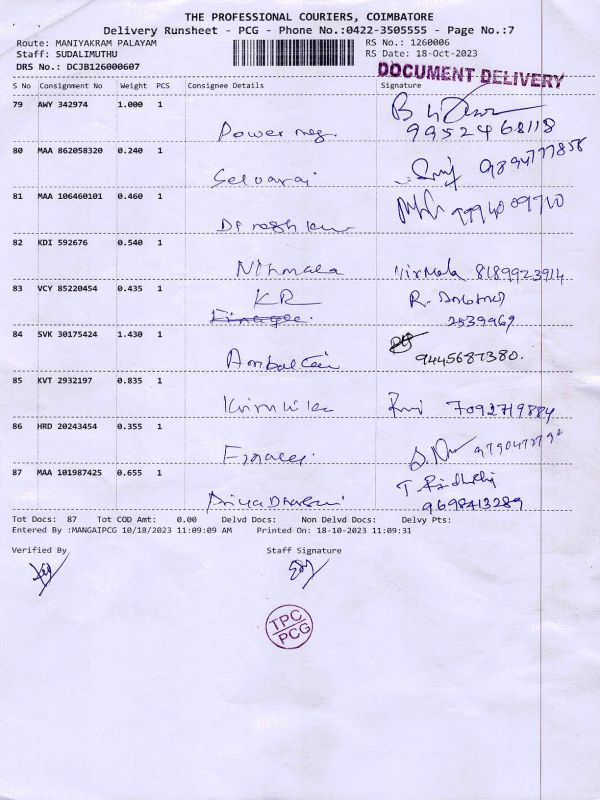 THE PROFESSIONAL COURIERS, COIMBATORE
Delivery Runsheet - PCG - Phone No.:0422-3505555 - Page No.:7
Route: MANIYAKRAM PALAYAM RS No.: 1260006
Staff: SUDALIMUTHU RS Date: 18-Oct-2023
DRS No.: DCJB126000607
DOCUMENT DELIVERY
S No Consignment No Weight PCS Consignee Details Signature
79 AWY 342974 1.000 1
Power meg. 9952468118
80 MAA 862058320 0.240 1 9894777858
Selvaraj
81 MAA 106460101 0.460 1
82 KDI 592676 0.540 1
Nirmala Nirmala 8189923914
83 VCY 85220454 0.435 1
KR R.
2539969
84 SVK 30175424 1.430 1
9445687380.
85 KVT 2932197 0.835 1
7092719884
86 HRD 20243454 0.355 1
87 MAA 101987425 0.655 1
PriyaDharsni 9698413289
Tot Docs: 87 Tot COD Amt: 0.00 Delvd Docs: Non Delvd Docs: Delvy Pts:
Entered By :MANGAIPCG 10/18/2023 11:09:09 AM Printed On: 18-10-2023 11:09:31
Verified By Staff Signature
TPC
PCG